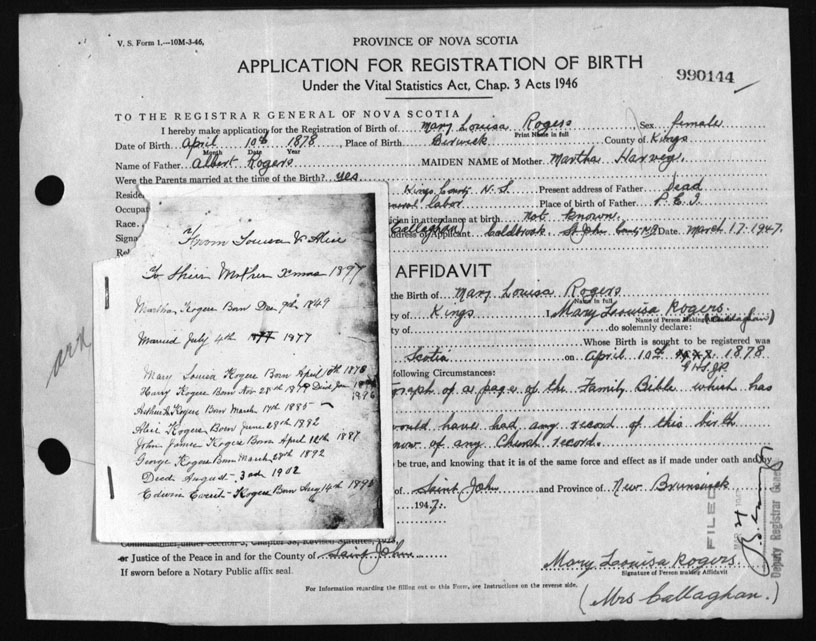 V. S. Form 1.—10M-3-46,
PROVINCE OF NOVA SCOTIA
APPLICATION FOR REGISTRATION OF BIRTH
Under the Vital Statistics Act, Chap. 3 Acts 1946
990144
TO THE REGISTRAR GENERAL OF NOVA SCOTIA
I hereby make application for the Registration of Birth of Mary Louisa Rogers Sex female
Print Name in full
Date of Birth April 10th 1878 Place of Birth Berwick County of Kings
Month Date Year
Name of Father Albert Rogers MAIDEN NAME of Mother Martha Harvey
Were the Parents married at the time of the Birth? Yes
Reside Kings County N. S. Present address of Father Dead
Occupa labor Place of birth of Father P.E.I.
Race cian in attendance at birth Not Known
Signa Callaghan address of Applicant Coldbrook St John County N.B. Date March 17. 1947.
Rel
From Louisa & Alice
To Their Mother Xmas 1897
Martha Rogers Born Dec 9th 1849
Married July 4th 1877
Mary Louisa Rogers Born April 10th 1878
Harry Rogers Born Nov 28th 1879 Died Jan
1896
Arthur Rogers Born March 17th 1885
Alice Rogers Born June 28th 1882
John James Rogers Born April 12th 1887
George Rogers Born March 28th 1892
Died August 3rd 1902
Edwin Rogers Born Aug 14th
AFFIDAVIT
the Birth of Mary Louisa Rogers
Name in full
ty of Kings I, Mary Louisa Rogers (Callaghan)
Name of Person Making
ty of do solemnly declare:
Whose Birth is sought to be registered was
Scotia on April 10th 1878
following Circumstances:
graph of a page of the Family Bible which has
would have had any record of this birth
now of any Church record.
be true, and knowing that it is of the same force and effect as if made under oath and by
of Saint John and Province of New Brunswick
1947.
FILED
Deputy Registrar General
Commissioner, under Section 3, Chapter 38, Revised Statutes, 1923,
or Justice of the Peace in and for the County of Saint John
If sworn before a Notary Public affix seal.
Mary Louisa Rogers
Signature of Person making Affidavit
(Mrs Callaghan.)
For Information regarding the filling out of this Form, see Instructions on the reverse side.